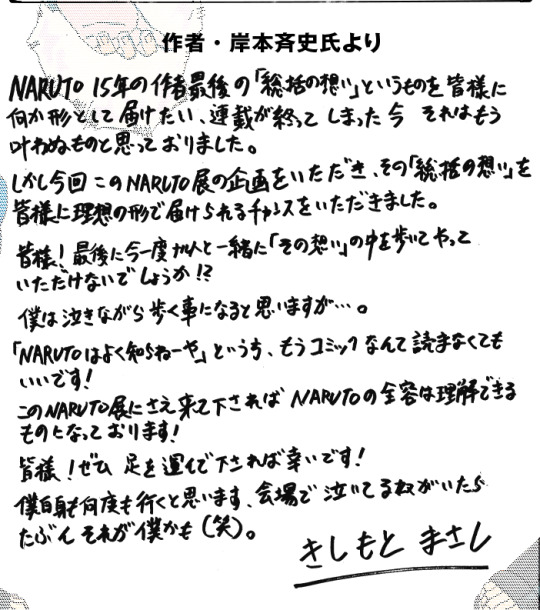 作者・岸本斉史氏より
NARUTO 15年の作者最後の「総括の想い」というものを皆様に
何か形として届けたい、連載が終ってしまった今 それはもう
叶わぬものと思っておりました。
しかし今回このNARUTO展の企画をいただき、その「総括の想い」を
皆様に理想の形で届けられるチャンスをいただきました。
皆様!最後に今一度 と一緒に「その想い」の中を歩いてやって
いただけないでしょうか!?
僕は泣きながら歩く事になると思いますが…。
「NARUTOはよく知らねーや」というち、もうコミックなんて読まなくても
いいです!
このNARUTO展にさえ来て下されば NARUTOの全容は理解できる
ものとなっております!
皆様!ぜひ 足を運んで下されば幸いです!
僕自身も何度も行くと思います、会場で泣いてる奴がいたら
たぶん それが僕かも(笑)。
きしもと まさし